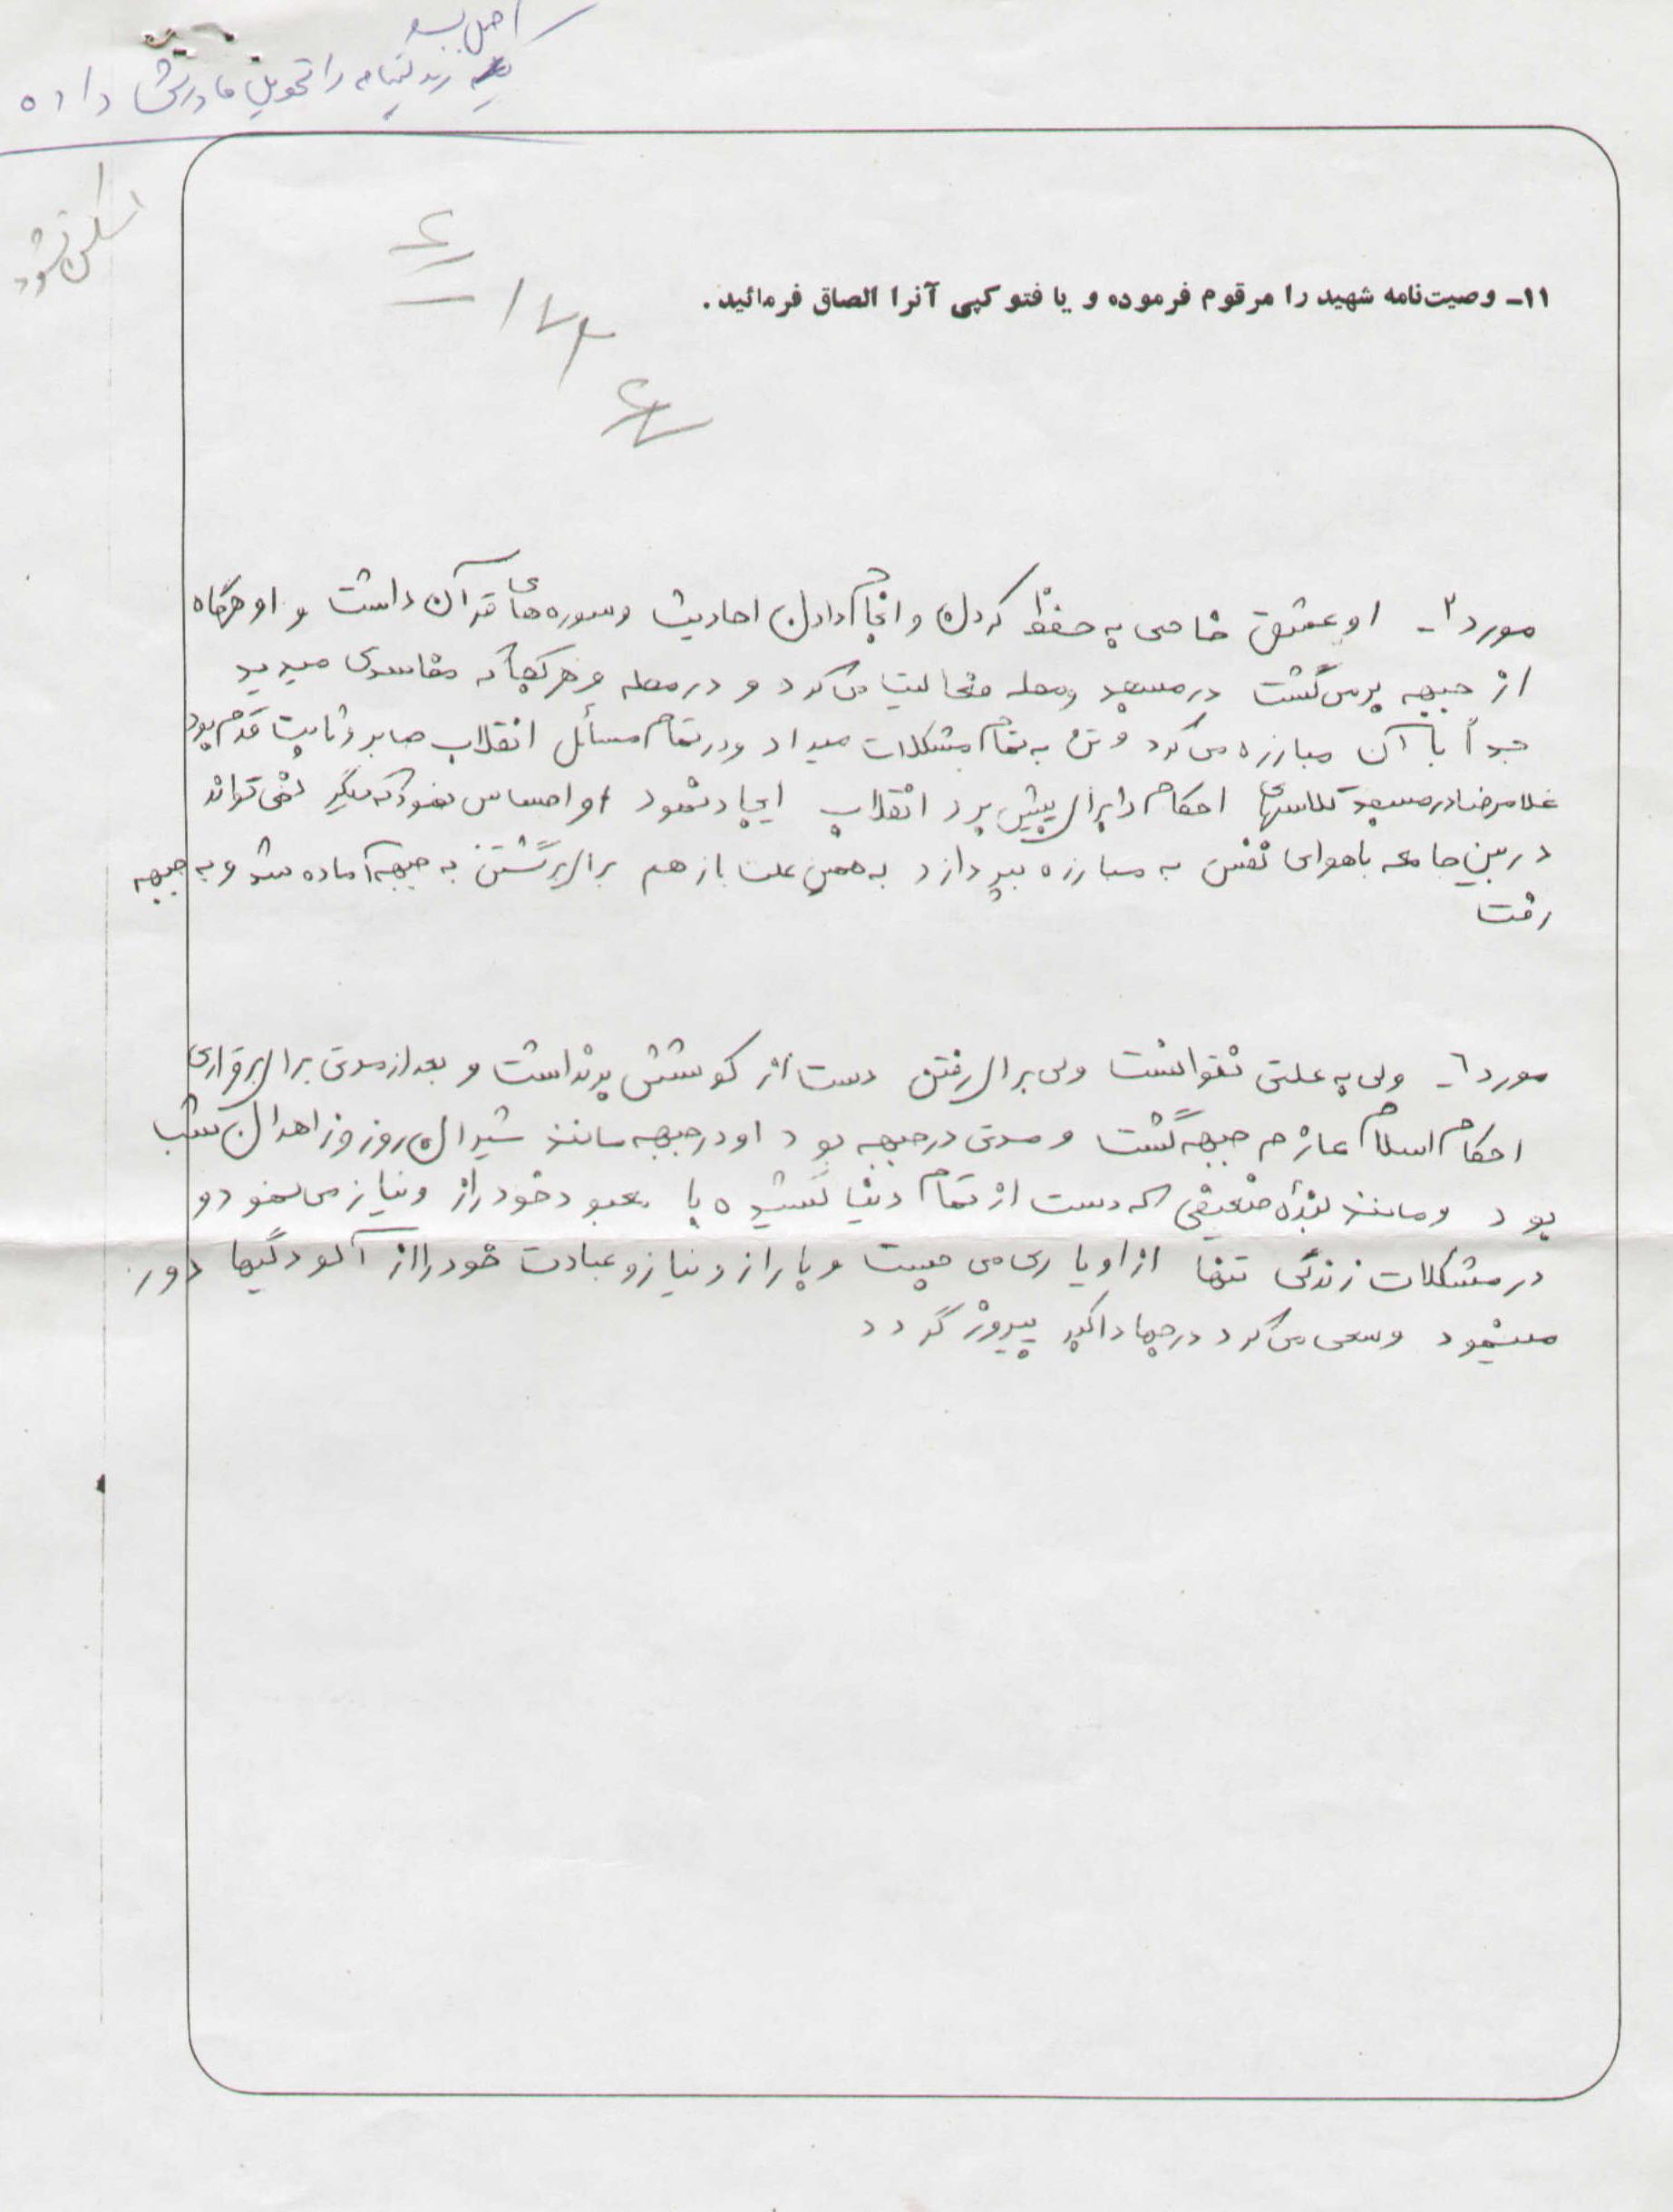 اصل
زندگینامه را تحویل مادرش داده
اسکن شود
۱۱- وصیت‌نامه شهید را مرقوم فرموده و یا فتوکپی آنرا الصاق فرمائید.
مورد ۲- او عشق خاصی به حفظ کردن و انجام دادن احادیث و سوره‌های قرآن داشت و او هرگاه
از جبهه برمی‌گشت در مسجد و محله فعالیت می‌کرد و در محله و هر کجا که مفاسدی میدید
جداً با آن مبارزه می‌کرد و تن به تمام مشکلات میداد و در تمام مسائل انقلاب صابر و ثابت قدم بود
غلامرضا در مسجد کلاسهای احکام را برای پیشبرد انقلاب ایجاد نمود او احساس نمود که دیگر نمی‌تواند
در بین جامعه با هوای نفس به مبارزه بپردازد به همین علت باز هم برای برگشتن به جبهه آماده شد و به جبهه
رفت
مورد ۶- ولی به علتی نتوانست ولی برای رفتن دست از کوشش برنداشت و بعد از مدتی برای برقراری
احکام اسلام عازم جبهه گشت و مدتی در جبهه بود او در جبهه مانند شیران روز و زاهدان شب
بود و مانند بنده ضعیفی که دست از تمام دنیا کشیده با معبود خود راز و نیاز می نمود و
در مشکلات زندگی تنها از او یاری می جست و با راز و نیاز و عبادت خود را از آلودگیها دور
مینمود و سعی می‌کرد در جهاد اکبر پیروز گردد